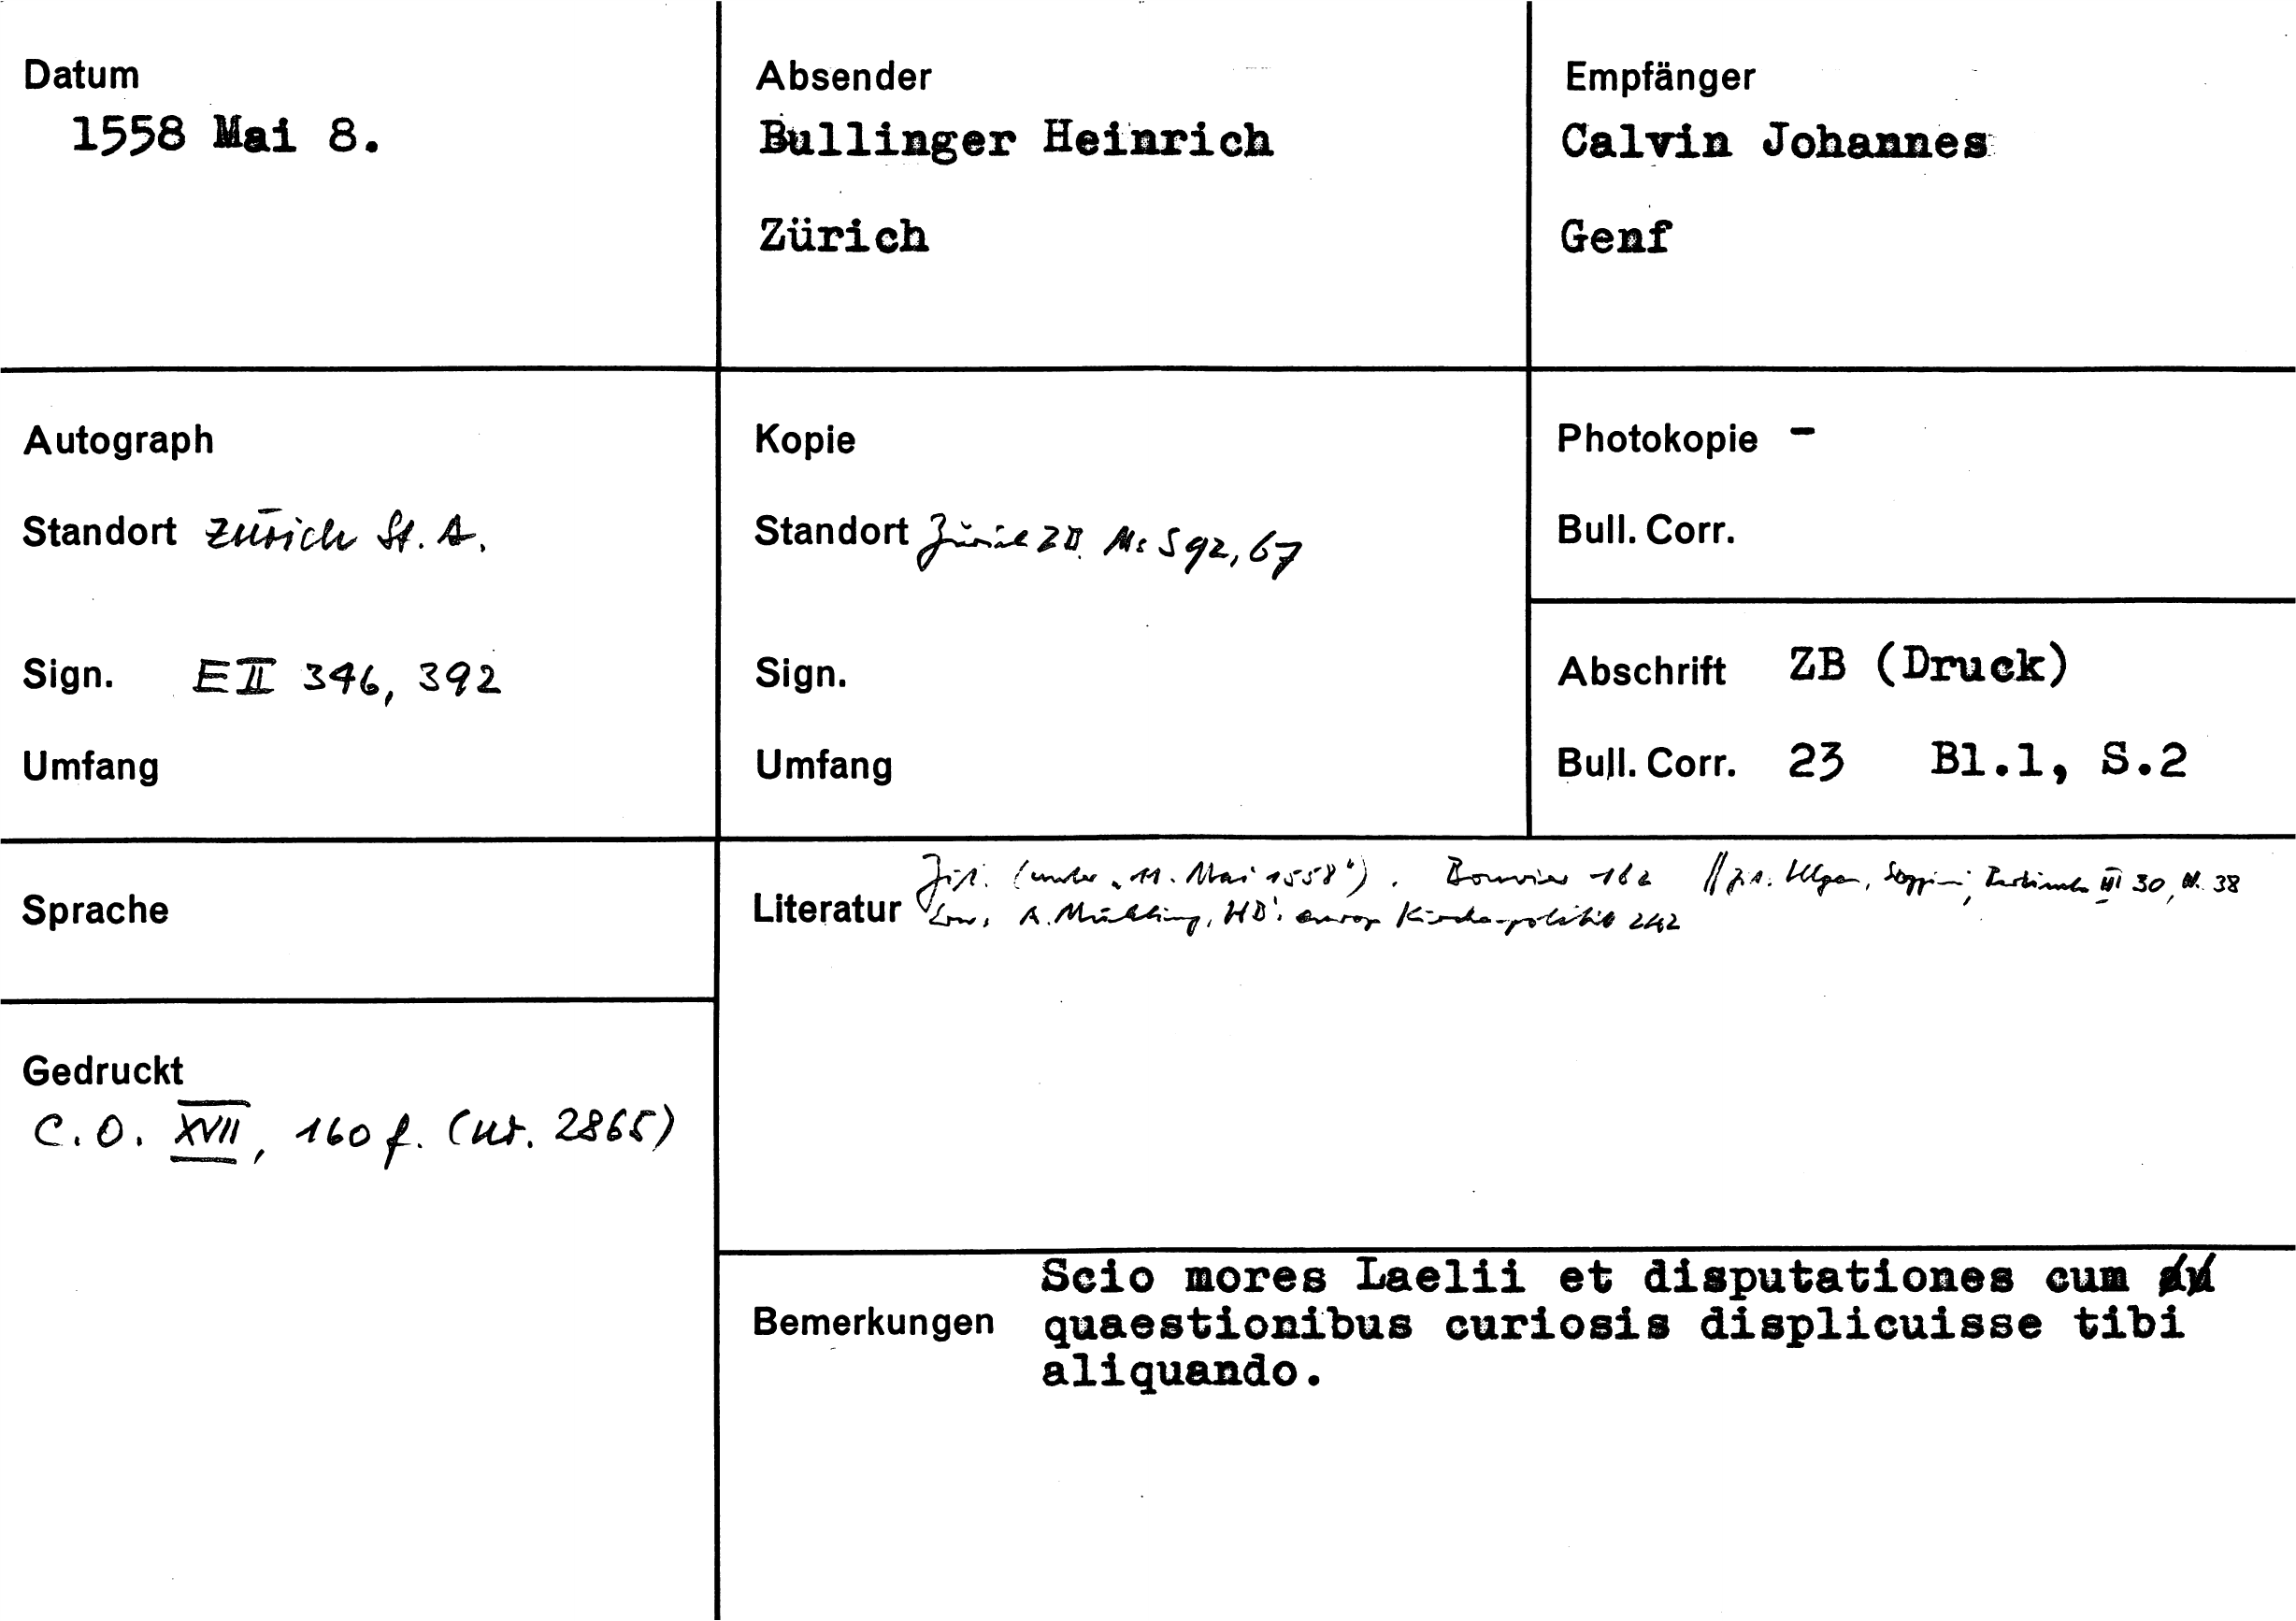 Datum
1558 Mai 8.
Absender
Bullinger Heinrich
Zürich
Empfänger
Calvin Johannes
Genf
Autograph
Standort Zürich St. A.
Sign. E II 346, 392
Umfang
Kopie
Standort Zürich ZB. Ms S 92, 67
Sign.
Umfang
Photokopie -
Bull. Corr.
Abschrift ZB (Druck)
Bull. Corr. 23 Bl.1, S.2
Sprache
Gedruckt
C.O. XVII, 160 f. (Nr. 2865)
Literatur
(unter „11. Mai 1558"). Bouvier 162 III 30, N. 38
A. Mühling, HB's europ Kirchenpolitik 242
Bemerkungen
Scio mores Laelii et disputationes cum
quaestionibus curiosis displicuisse tibi
aliquando.